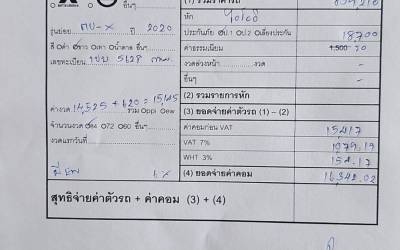 (1) รวมราคารถ
หัก
รุ่นย่อย MU-X ปี 2020
ประกันภัย ป1 ป2 เลือกประกัน 18700
สี ดำ ขาว เทา น้ำตาล อื่นๆ
ค่าธรรมเนียม 1,500 20
เลขทะเบียน
ค่างวดล่วงหน้า งวด -
อื่นๆ -
(2) รวมรายการหัก
ค่างวด 14,525 + 620 = 15,145
(3) ยอดจ่ายค่าตัวรถ (1) - (2)
จำนวนงวด 84 072 060 อื่นๆ
ค่าคอมก่อน VAT 15417
งวดแรกวันที่
VAT 7% 1079.19
WHT 3% 154.17
(4) ยอดจ่ายค่าคอม 16,342.02
สุทธิจ่ายค่าตัวรถ + ค่าคอม (3) + (4)